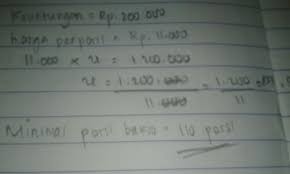 Keuntungan = Rp. 200.000
harga perporsi = Rp. 11.000
11.000 x u = 1.200.000
u = 1.200.000 / 11.000 = 1.200 / 11
Minimal porsi bakso = 110 porsi